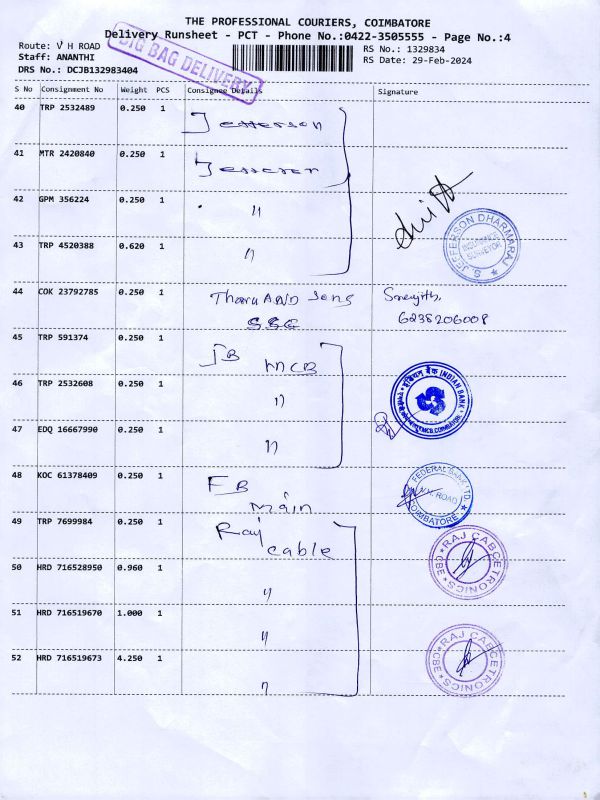 THE PROFESSIONAL COURIERS, COIMBATORE
Delivery Runsheet - PCT - Phone No.:0422-3505555 - Page No.:4
Route: V H ROAD
RS No.: 1329834
Staff: ANANTHI
RS Date: 29-Feb-2024
DRS No.: DCJB132983404
BIG BAG DELIVERY
S No Consignment No Weight PCS Consignee Details Signature
40 TRP 2532489 0.250 1 Jefferson
41 MTR 2420840 0.250 1
42 GPM 356224 0.250 1 "
43 TRP 4520388 0.620 1 "
S. JEFFERSON DHARMARAJ
INSURANCE
SURVEYOR
44 COK 23792785 0.250 1 AND Sons
6238206008
45 TRP 591374 0.250 1 IB MCB
46 TRP 2532608 0.250 1 "
INDIAN BANK
47 EDQ 16667990 0.250 1 "
48 KOC 61378409 0.250 1 FB
main
FEDERAL BANK LTD.
V.H. ROAD
COIMBATORE
49 TRP 7699984 0.250 1 Raj
cable
RAJ CABCETRONICS
CBE
50 HRD 716528950 0.960 1 "
51 HRD 716519670 1.000 1 "
52 HRD 716519673 4.250 1 "
RAJ CABCETRONICS
CBE